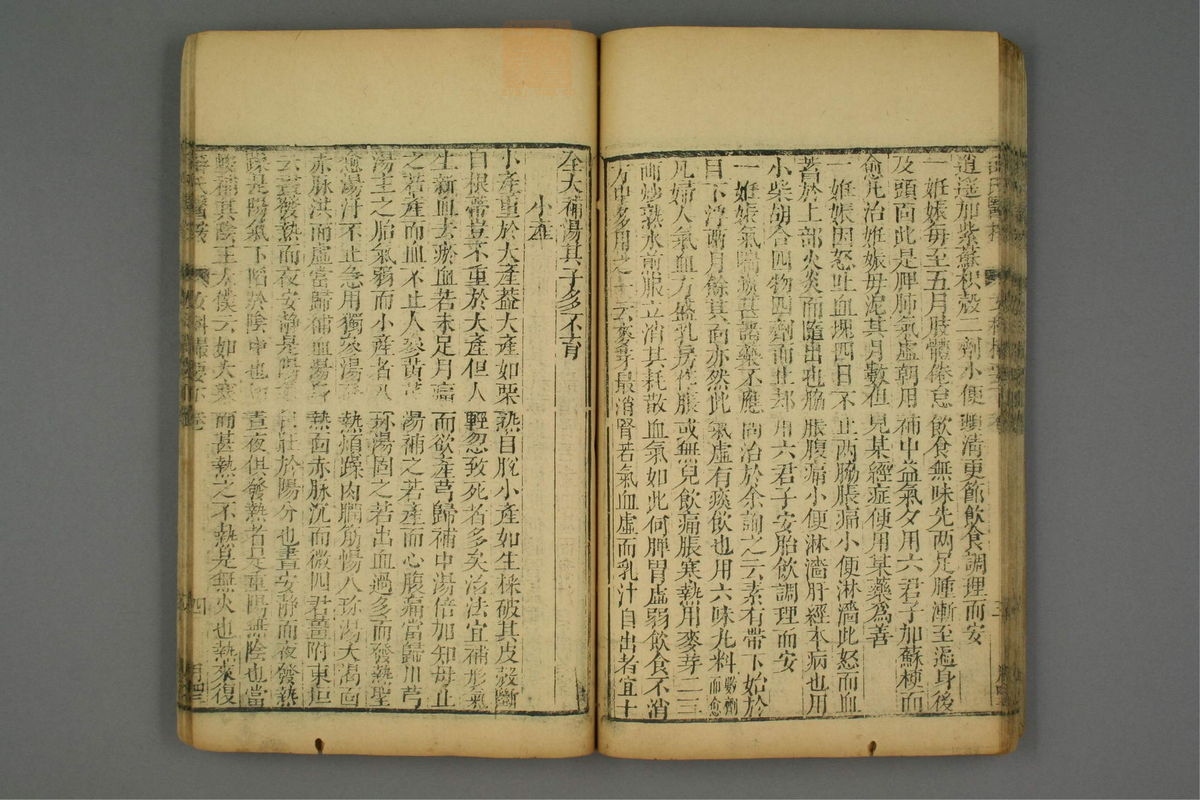 逍遙加紫蘇枳殼二劑小便順清更節飲食調理而安
一妊娠每至五月肢體倦怠飲食無味先兩足腫漸至遍身後
及頭面此是脾肺氣虛朝用補中益氣夕用六君子加蘇梗而
愈凡治妊娠毋泥其月數但見某經症便用某藥為善
一妊娠因怒吐血塊四日不止兩脇脹痛小便淋濇此怒而血
蓄於上部火炎而隨出也脇脹腹痛小便淋濇肝經本病也用
小柴胡合四物四劑而止却用六君子安胎飲調理而安
一妊娠氣喘痰甚諸藥不應問治於余詢之云素有帶下始於
目下浮兩月餘其面亦然此氣虛有痰飲也用六味丸料數劑而愈
凡婦人氣血方盛乳房作脹或無兒飲痛脹寒熱用麥芽二三
兩炒熟水煎服立消其耗散血氣如此何脾胃虛弱飲食不消
方中多用之一云麥芽最消腎若氣血虛而乳汁自出者宜十
全大補湯其子多不育
小產
小產重於大產蓋大產如栗熟自脫小產如生採破其皮殼斷
自根蒂豈不重於大產但人輕忽致死者多矣治法宜補形氣
生新血去瘀血若未足月痛而欲產芎歸補中湯倍加知母止
之若產而血不止人參黃芪湯補之若產而心腹痛當歸川芎
湯主之胎氣弱而小產者八珍湯固之若出血過多而發熱聖
愈湯汗不止急用獨參湯發熱煩躁肉瞤筋惕八珍湯大渴面
赤脉洪而虛當歸補血湯身熱面赤脉沉而微四君薑附東垣
云晝發熱而夜安靜是陽氣自旺於陽分也晝安靜而夜發熱
躁是陽氣下陷於陰中也晝夜俱發熱者是重陽無陰也當
峻補其陰王太僕云如大寒而甚熱之不熱是無火也熱來復